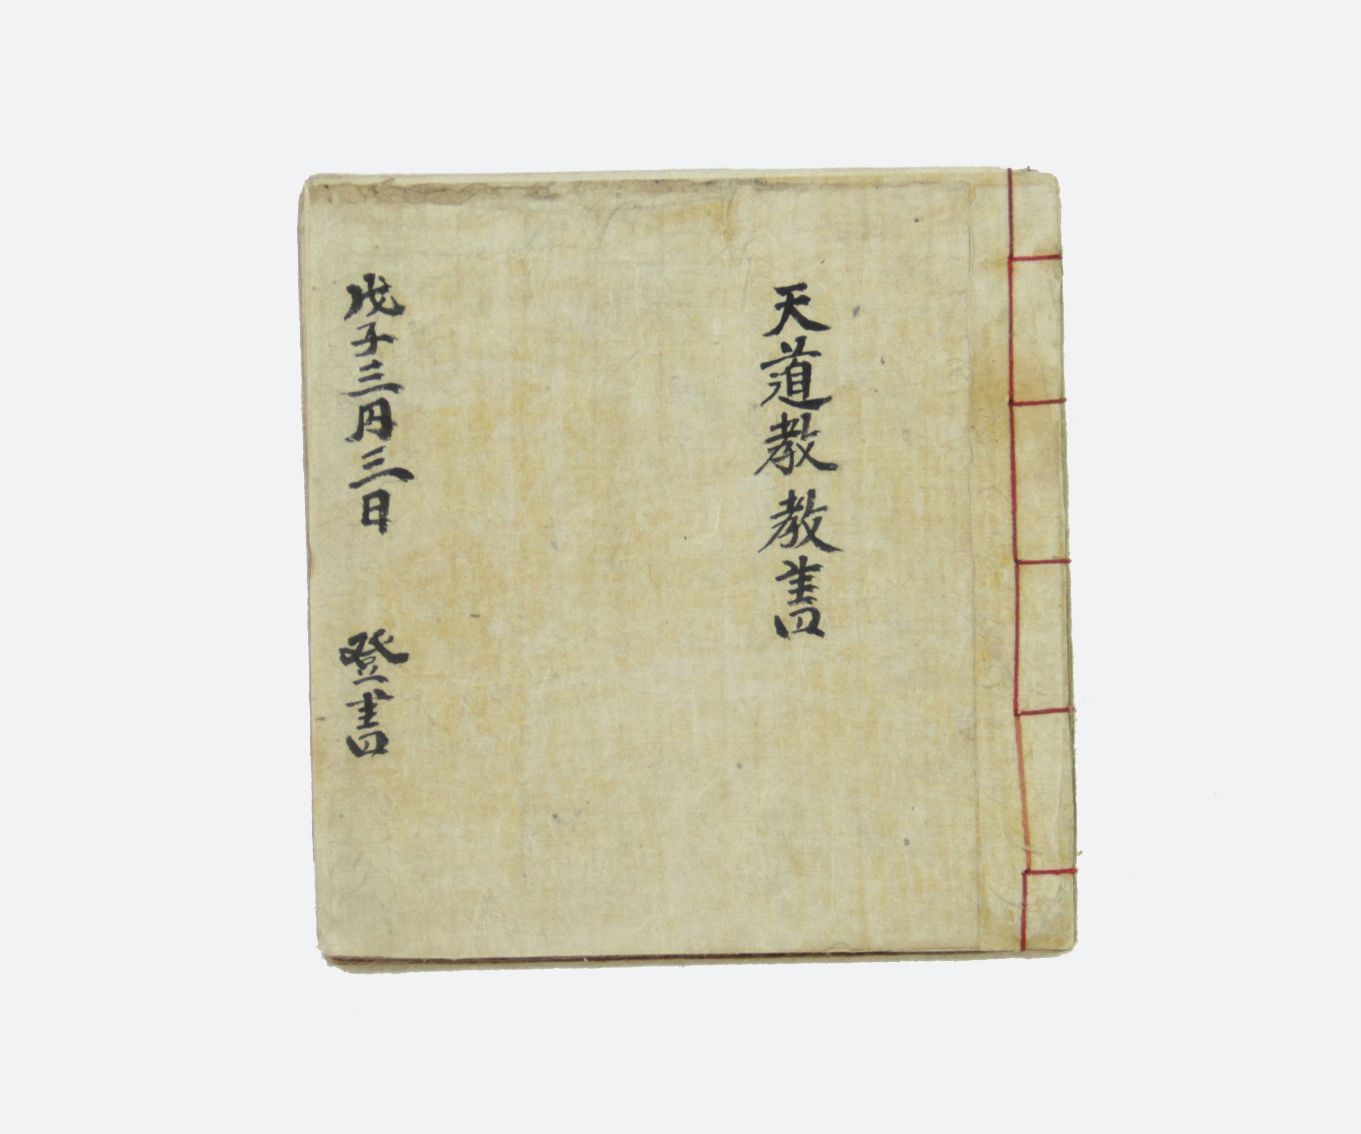 天道教教書
戊子三円三日 登書